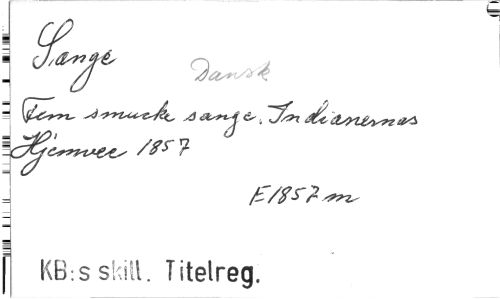 Sange
Dansk
Fem smucke sange. Indianernas
Hjemvee 1857
E 1857 m
KB:s skill. Titelreg.